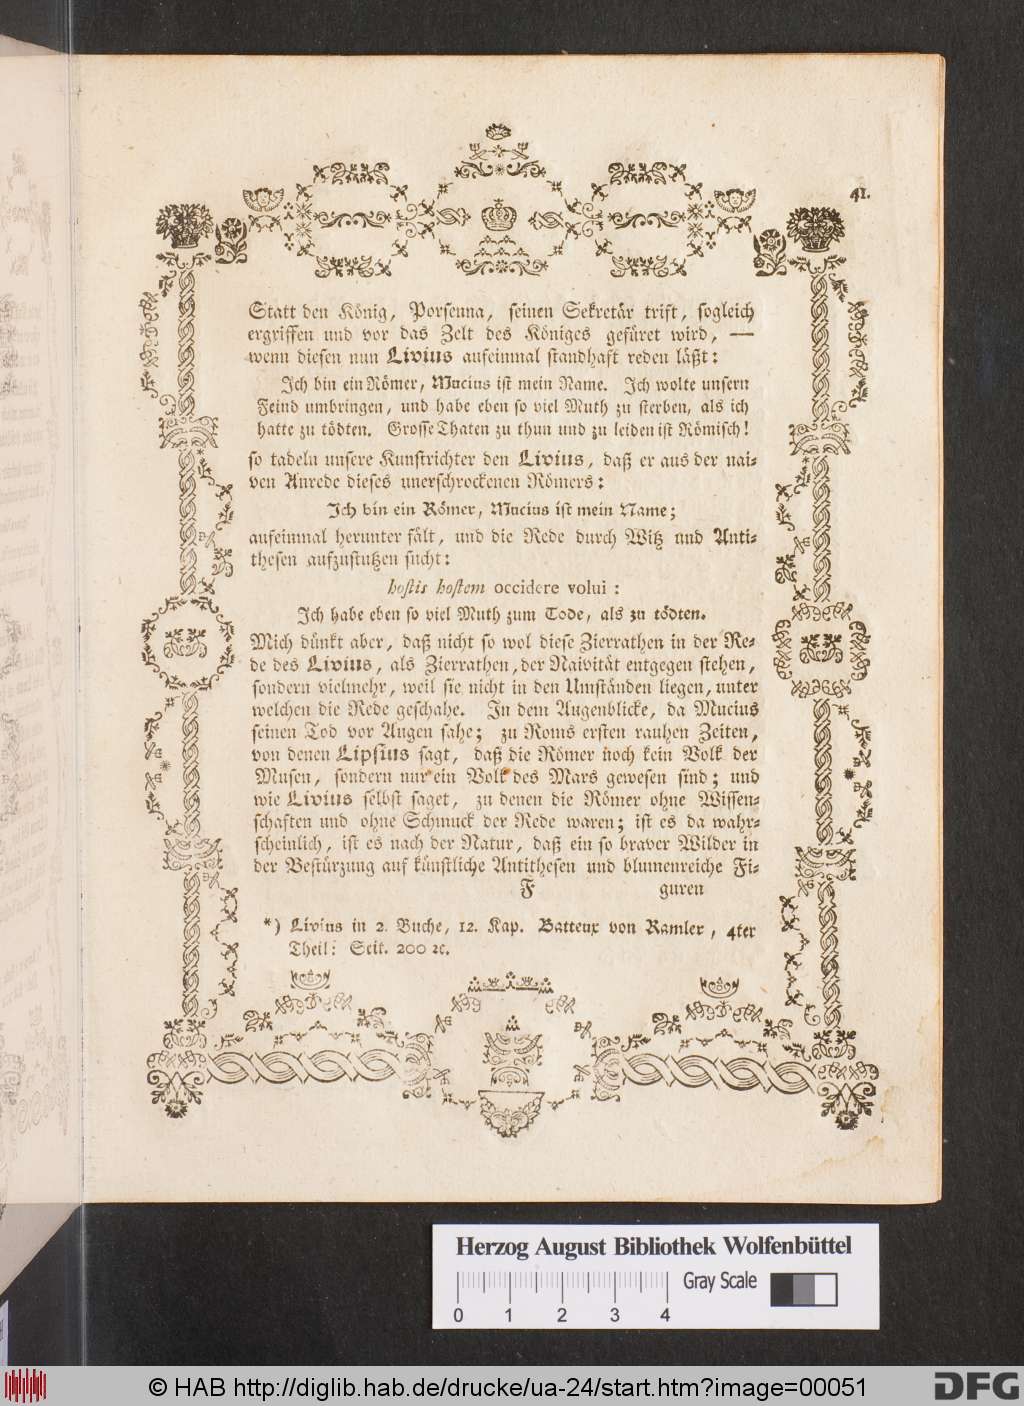 41.
Statt den König, Porsenna, seinen Sekretär trift, sogleich
ergriffen und vor das Zelt des Königes gefüret wird, —
wenn diesen nun Livius aufeinmal standhaft reden läßt:
Ich bin ein Römer, Mucius ist mein Name. Ich wolte unsern
Feind umbringen, und habe eben so viel Muth zu sterben, als ich
hatte zu tödten. Grosse Thaten zu thun und zu leiden ist Römisch!
so tadeln unsere Kunstrichter den Livius, daß er aus der nai-
ven Anrede dieses unerschrockenen Römers:
Ich bin ein Römer, Mucius ist mein Name;
aufeinmal herunter fält, und die Rede durch Witz und Anti-
thesen aufzustutzen sucht:
hostis hostem occidere volui:
Ich habe eben so viel Muth zum Tode, als zu tödten.
Mich dünkt aber, daß nicht so wol diese Zierrathen in der Re-
de des Livius, als Zierrathen, der Naivität entgegen stehen,
sondern vielmehr, weil sie nicht in den Umständen liegen, unter
welchen die Rede geschahe. In dem Augenblicke, da Mucius
seinen Tod vor Augen sahe; zu Roms ersten rauhen Zeiten,
von denen Lipsius sagt, daß die Römer noch kein Volk der
Musen, sondern nur ein Volk des Mars gewesen sind; und
wie Livius selbst saget, zu denen die Römer ohne Wissen-
schaften und ohne Schmuck der Rede waren; ist es da wahr-
scheinlich, ist es nach der Natur, daß ein so braver Wilder in
der Bestürzung auf künstliche Antithesen und blumenreiche Fi-
F guren
*) Livius in 2. Buche, 12. Kap. Batteux von Ramler, 4ter
Theil: Seit. 200 ꝛc.
Herzog August Bibliothek Wolfenbüttel
Gray Scale
0 1 2 3 4
© HAB http://diglib.hab.de/drucke/ua-24/start.htm?image=00051
DFG